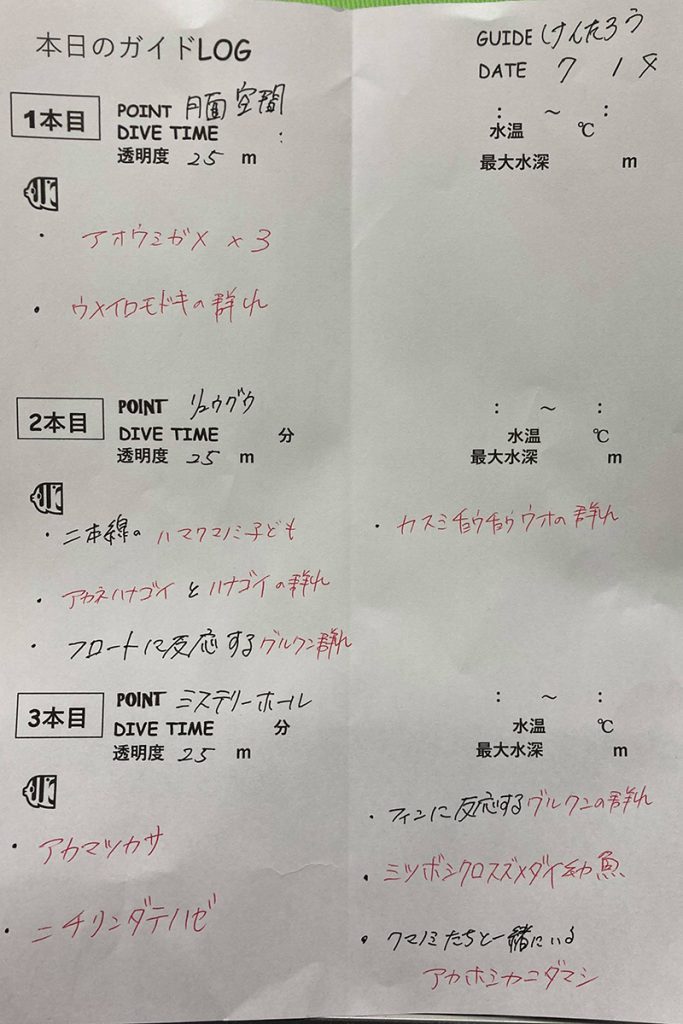 本日のガイドLOG
GUIDE けんたろう
DATE 7 / 8
1本目
POINT 月面空間
DIVE TIME :
透明度 25 m
: ～ :
水温 ℃
最大水深 m
・ アオウミガメ x 3
・ ウメイロモドキの群れ
2本目
POINT リュウグウ
DIVE TIME 分
透明度 25 m
: ～ :
水温 ℃
最大水深 m
・二本線の ハマクマノミ子ども
・アカネハナゴイ と ハナゴイの群れ
・フロートに反応するグルクン群れ
・カスミチョウチョウウオの群れ
3本目
POINT ミステリーホール
DIVE TIME 分
透明度 25 m
: ～ :
水温 ℃
最大水深 m
・アカマツカサ
・ニチリンダテハゼ
・フィンに反応するグルクンの群れ
・ミツボシクロスズメダイ幼魚
・クマノミたちと一緒にいる
アカホシカニダマシ